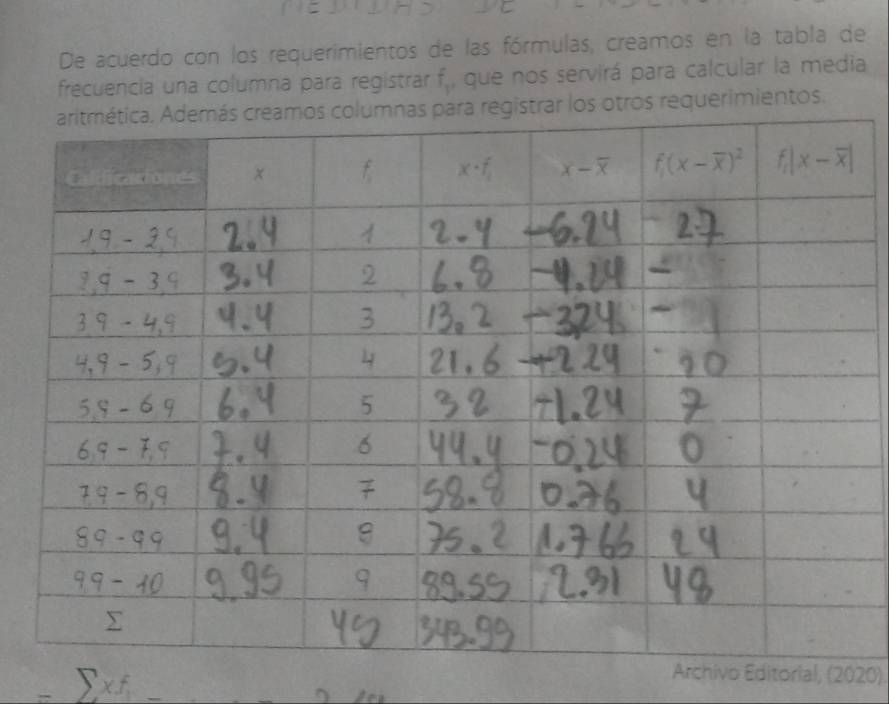 MEDIDAS DE
De acuerdo con los requerimientos de las fórmulas, creamos en la tabla de
frecuencia una columna para registrar fᵢ, que nos servirá para calcular la media
aritmética. Además creamos columnas para registrar los otros requerimientos.
Calificaciones x fᵢ x·fᵢ x – x̅ fᵢ(x – x̅)² fᵢ|x – x̅|
1,9 - 2,9 2.4 1 2.4 -6.24 27
2,9 - 3,9 3.4 2 6.8 -4.24 -
3,9 - 4,9 4.4 3 13.2 -3.24 -
4,9 - 5,9 5.4 4 21.6 -2.24 20
5,9 - 6,9 6.4 5 32 -1.24 7
6,9 - 7,9 7.4 6 44.4 -0.24 0
7,9 - 8,9 8.4 7 58.8 0.76 4
8,9 - 9,9 9.4 8 75.2 1.766 24
9,9 - 10 9.95 9 89.55 2.31 48
Σ 45 343.99
Archivo Editorial, (2020).
Σx.fᵢ